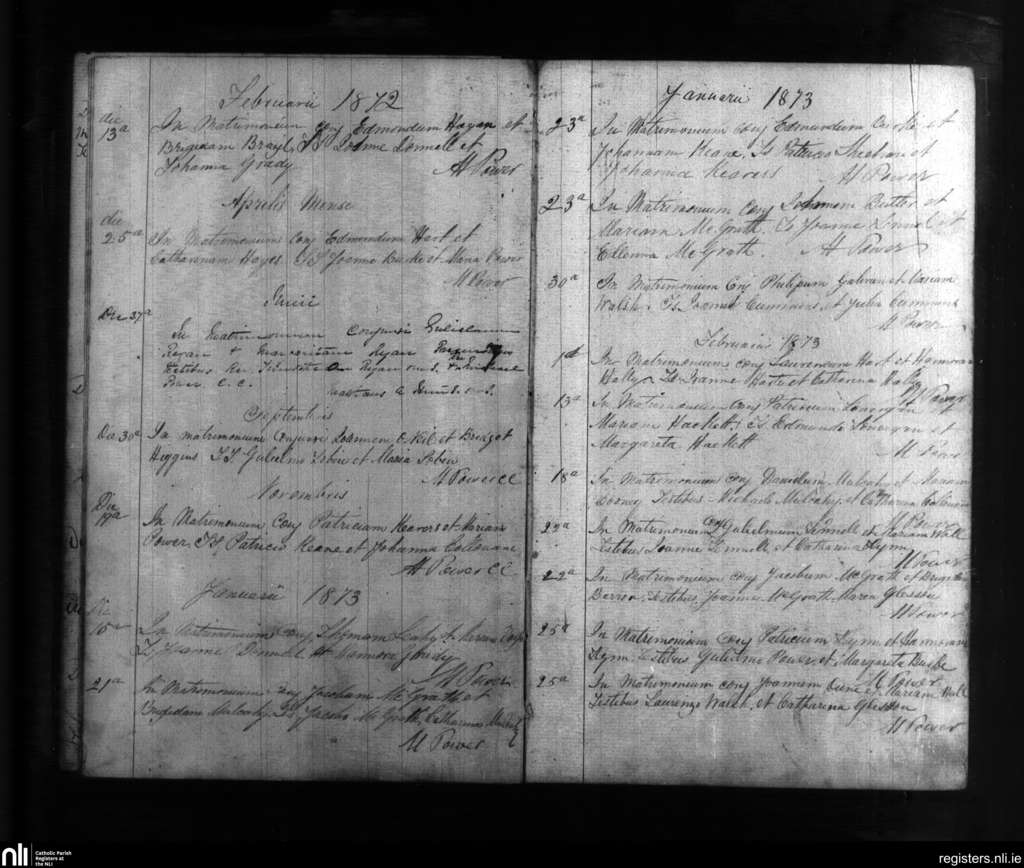 Februarii 1872
die 13a In Matrimonium conj Edmondum Hagan et
Brigidam Brayl, TS Joanne Donnell et
Johanna Grady
M Power
Aprilis Mense
die 25a In Matrimonium conj Edmundum Hart et
Catharinam Hayes. TS Joanne Burke et Maria Power
M Power
Junii
Die
In Matrimonium conjunxi Gulielmum
Ryan + Margaritam Ryan
Testibus Ryan
Power C. C.
Septembris
Die 30a In matrimonium conjunxi Joannem O Neil et Bridget
Higgins TS Gulielmo Tobin et Maria Tobin
M Power CC
Novembris
Die
In Matrimonium conj Patricium Hearors et Mariam
Power. TS. Patricio Keane et Johanna Coltonane
M Power CC
Januarii 1873
15a In Matrimonium conj Thomam Leahy +
TS Joanne Donnell et Hannora Grady
M Power
21a In Matrimonium conj Jacobum McGrath et
Brigidam Mulcahy. TS Jacobo McGrath, Catharina
M Power
Januarii 1873
23a In Matrimonium conj Edmundum et
Johannam Keane. Ts Patricio Sheehan et
Johanna Hearors
M Power
23a In Matrimonium conj Johannem Butler et
Mariam McGrath. Ts Joanne et
Ellenna McGrath. M Power
30a In Matrimonium Conj Philipum Galvan et Mariam
Walsh. Ts. Joanne Cummins et Julia Cummins
M Power
Februarii 1873
1d In Matrimonium conj Laurencum Hart et Hannoram
Daly Ts Joanne Harte et Catharina Daly
M Power
13a In Matrimonium conj Patricium Lonergan
Mariam Hackett. Ts Edmundo Lonergan et
Margareta Hackett
M Power
18a In Matrimonium conj Danielum Mulcahy et
Cooney Testibus Michaele Mulcahy et Catharina
M Power
22a In Matrimonium conj Gulielmum Donnell et Mariam Wall
Testibus Joanne Donnell, et Catharina Flynn
M Power
22a In Matrimonium conj Jacobum McGrath et
Testibus, Joanne McGrath Maria Gleeson
M Power
25a In Matrimonium conj Patricium Flynn et Hannoram
Flynn. Testibus Gulielmo Power, et Margarita Burke
M Power
25a In Matrimonium conj Joannem et Mariam
Testibus Laurenzo Walsh, et Catharina Gleeson
M Power
nli Catholic Parish
Registers at
the NLI
registers.nli.ie